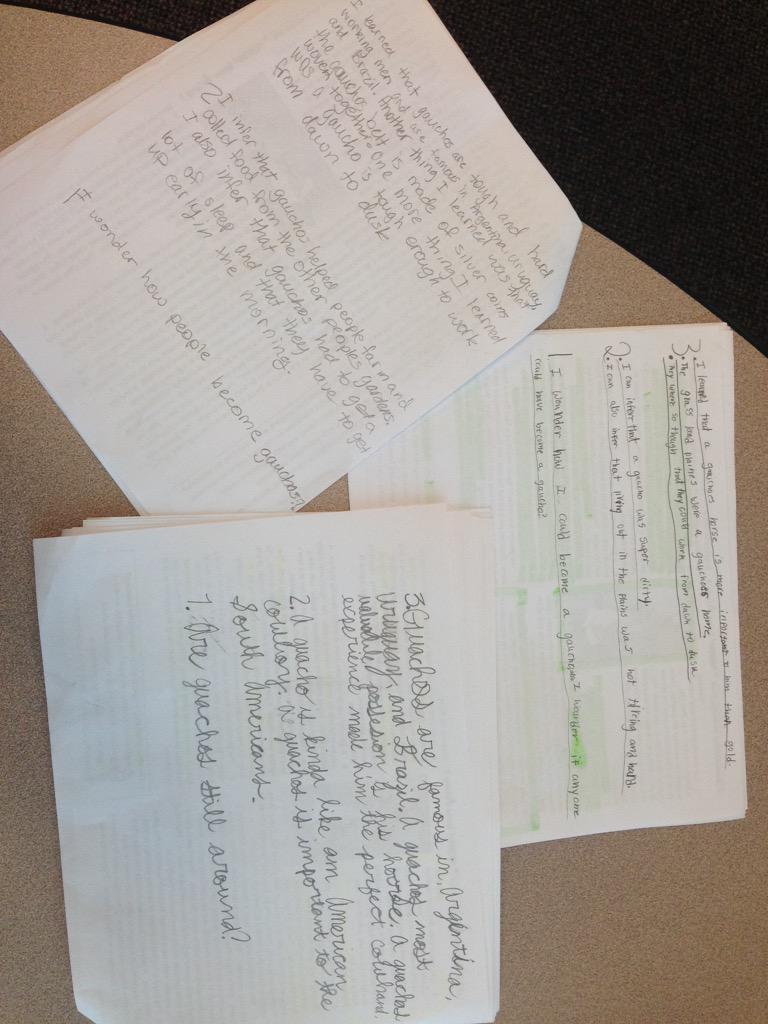 I learned that gauchos are tough and hard
working men and are famous in Argentina, Uruguay,
and Brazil. Another thing I learned was that
the gauchos belt is made of silver coins
woven together. One more thing I learned
was a gaucho is tough enough to work
from dawn to dusk
2 I infer that gauchos helped
collect food from the other people farm and
I also infer that gauchos had to get a
lot of sleep and that they have to get
up early in the morning.
1 I wonder how people become gauchos?
3. I learned that a gauchos horse is more important to him than gold.
• The grass land plaines were a gauchos home.
• They where so though that they could work from dawn to dusk
2. I can infer that a gaucho was super dirty.
• I can also infer that living out in the plains was hot tiring and hard.
1 I wounder how I could become a gaucho I wounder if anyone
could have become a gaucho?
3. Guachos are famous in, Argentina,
Uruguay, and Brazil. A guachos most
valuable possession is his hoorse. A guachos
experience made him the perfect cowhand.
2. A guacho is kinda like am American
cowboy. A guachos is important to the
South Americans.
1. Are guachos still around?